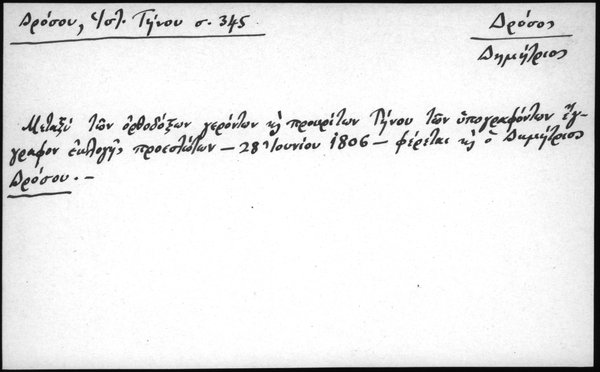 Δρόσου, Ἱστ. Τήνου σ. 345
Δρόσος
Δημήτριος
Μεταξὺ τῶν ὀρθοδόξων γερόντων κὴ προκρίτων Τήνου τῶν ὑπογραφόντων ἔγ-
γραφον ἐκλογῆς προεστώτων — 28 Ἰουνίου 1806 — φέρεται κὴ ὁ Δημήτριος
Δρόσου. —